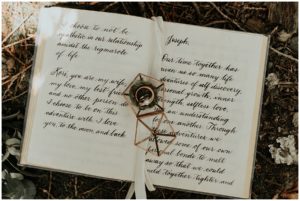 I choose to not be
synthetic in our relationship
amidst the rigmarole
of life.
you are my wife,
my love, my best friend
and no other person do
I choose to be on this
adventure with. I love
you, to the moon, and back
Joseph,
Our time together has
given us so many life
adventures of self discovery,
personal growth, inner
strength, selfless love
an understanding
to one another. Through
these adventures we
allowed some of our own
personal bonds to melt
away so that we could
hold together tighter and